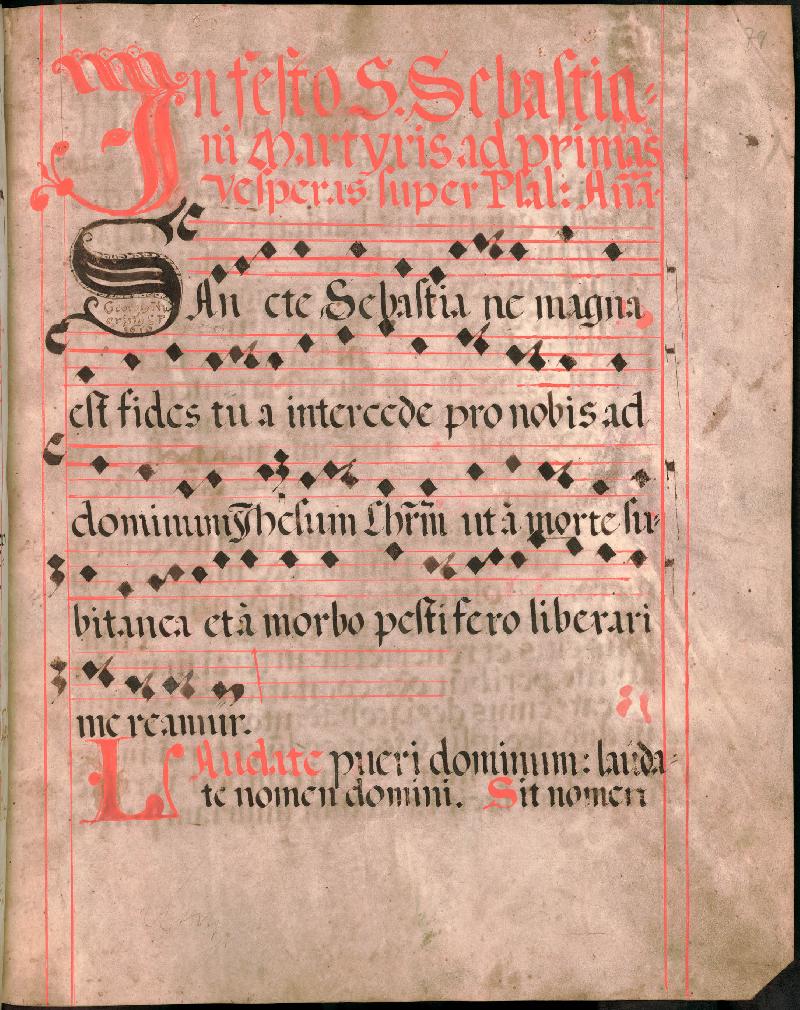 79
In festo S. Sebastia-
ni Martyris ad primas
Vesperas super Psal: Aña.
SAn cte Sebastia ne magna
est fides tu a intercede pro nobis ad
dominum Jhesum Chr̃m ut à morte su-
bitanea et à morbo pestifero liberari
me reamur.
LAudate pueri dominum: lauda-
te nomen domini. Sit nomen